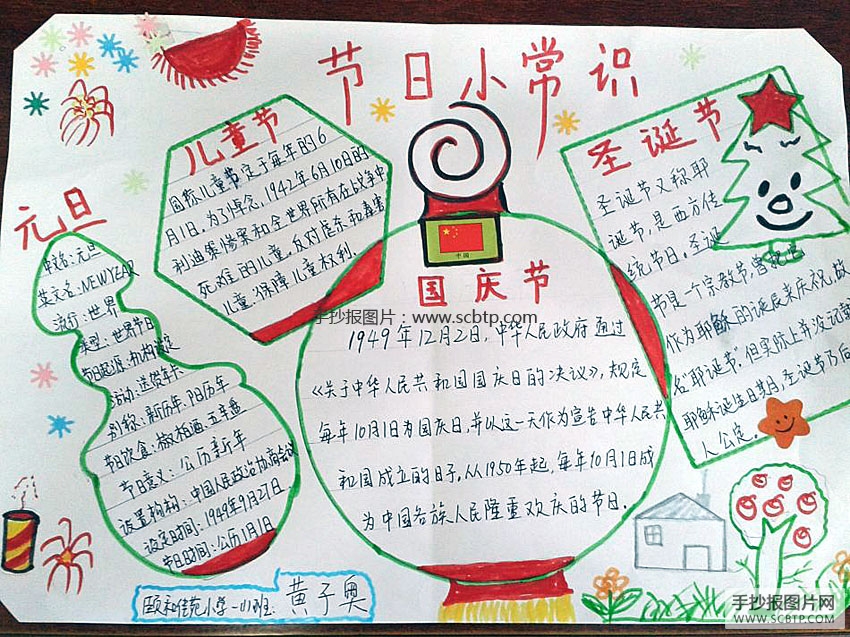 节日小常识
儿童节
国际儿童节定于每年的6
月1日。为了悼念，1942年6月10日的
利迪策惨案和全世界所有在战争中
死难的儿童，反对虐杀和毒害
儿童，保障儿童权利。
元旦
中文名：元旦
英文名：NEWYEAR
流行：世界
类型：世界节日
节日起源：机构设定
活动：送贺年卡
别称：新历年、阳历年
节日饮食：椒柏酒、五辛盘
节日意义：公历新年
设置机构：中国人民政治协商会议
设定时间：1949年9月27日
节日时间：公历1月1日
中国
国庆节
手抄报图片：www.scbtp.com
1949年12月2日，中华人民政府通过
《关于中华人民共和国国庆日的决议》，规定
每年10月1日为国庆日，并以这一天作为宣告中华人民共
和国成立的日子。从1950年起，每年10月1日成
为中国各族人民隆重欢庆的节日。
圣诞节
圣诞节又称耶
诞节，是西方传
统节日。圣诞
节是一个宗教节，曾把它
作为耶稣的诞辰来庆祝，故
名“耶诞节”。但实际上并没记载
耶稣诞生日其月，圣诞节乃后
人公定。
颐和佳苑小学一、班：黄子奥
手抄报图片网
WWW.SCBTP.COM